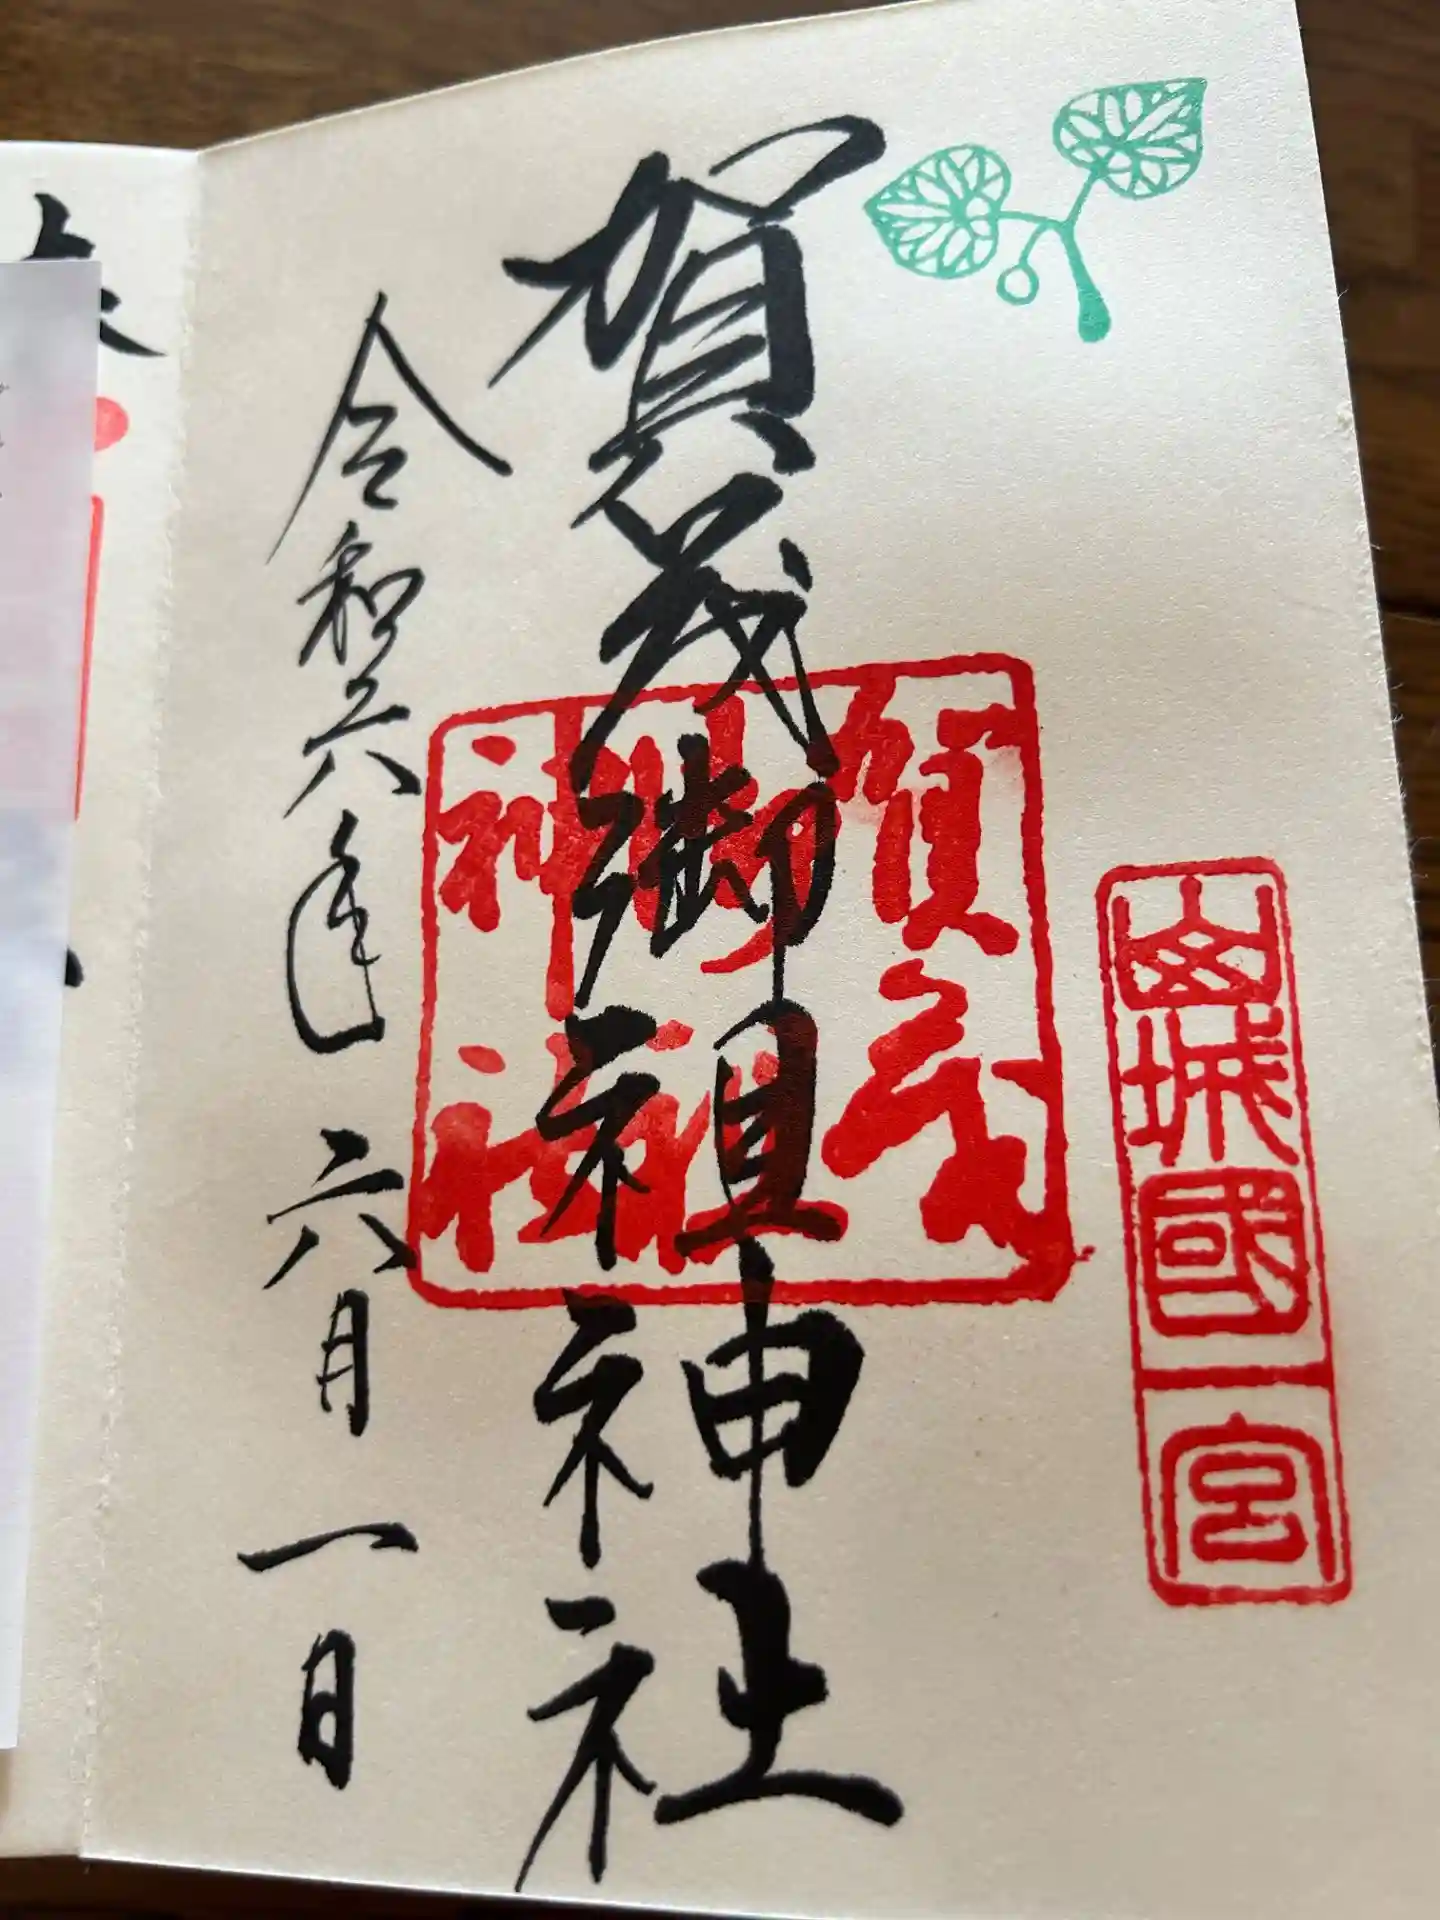 山城國一宮
賀茂御祖神社
賀茂
御祖
神社
令和六年 六月 一日